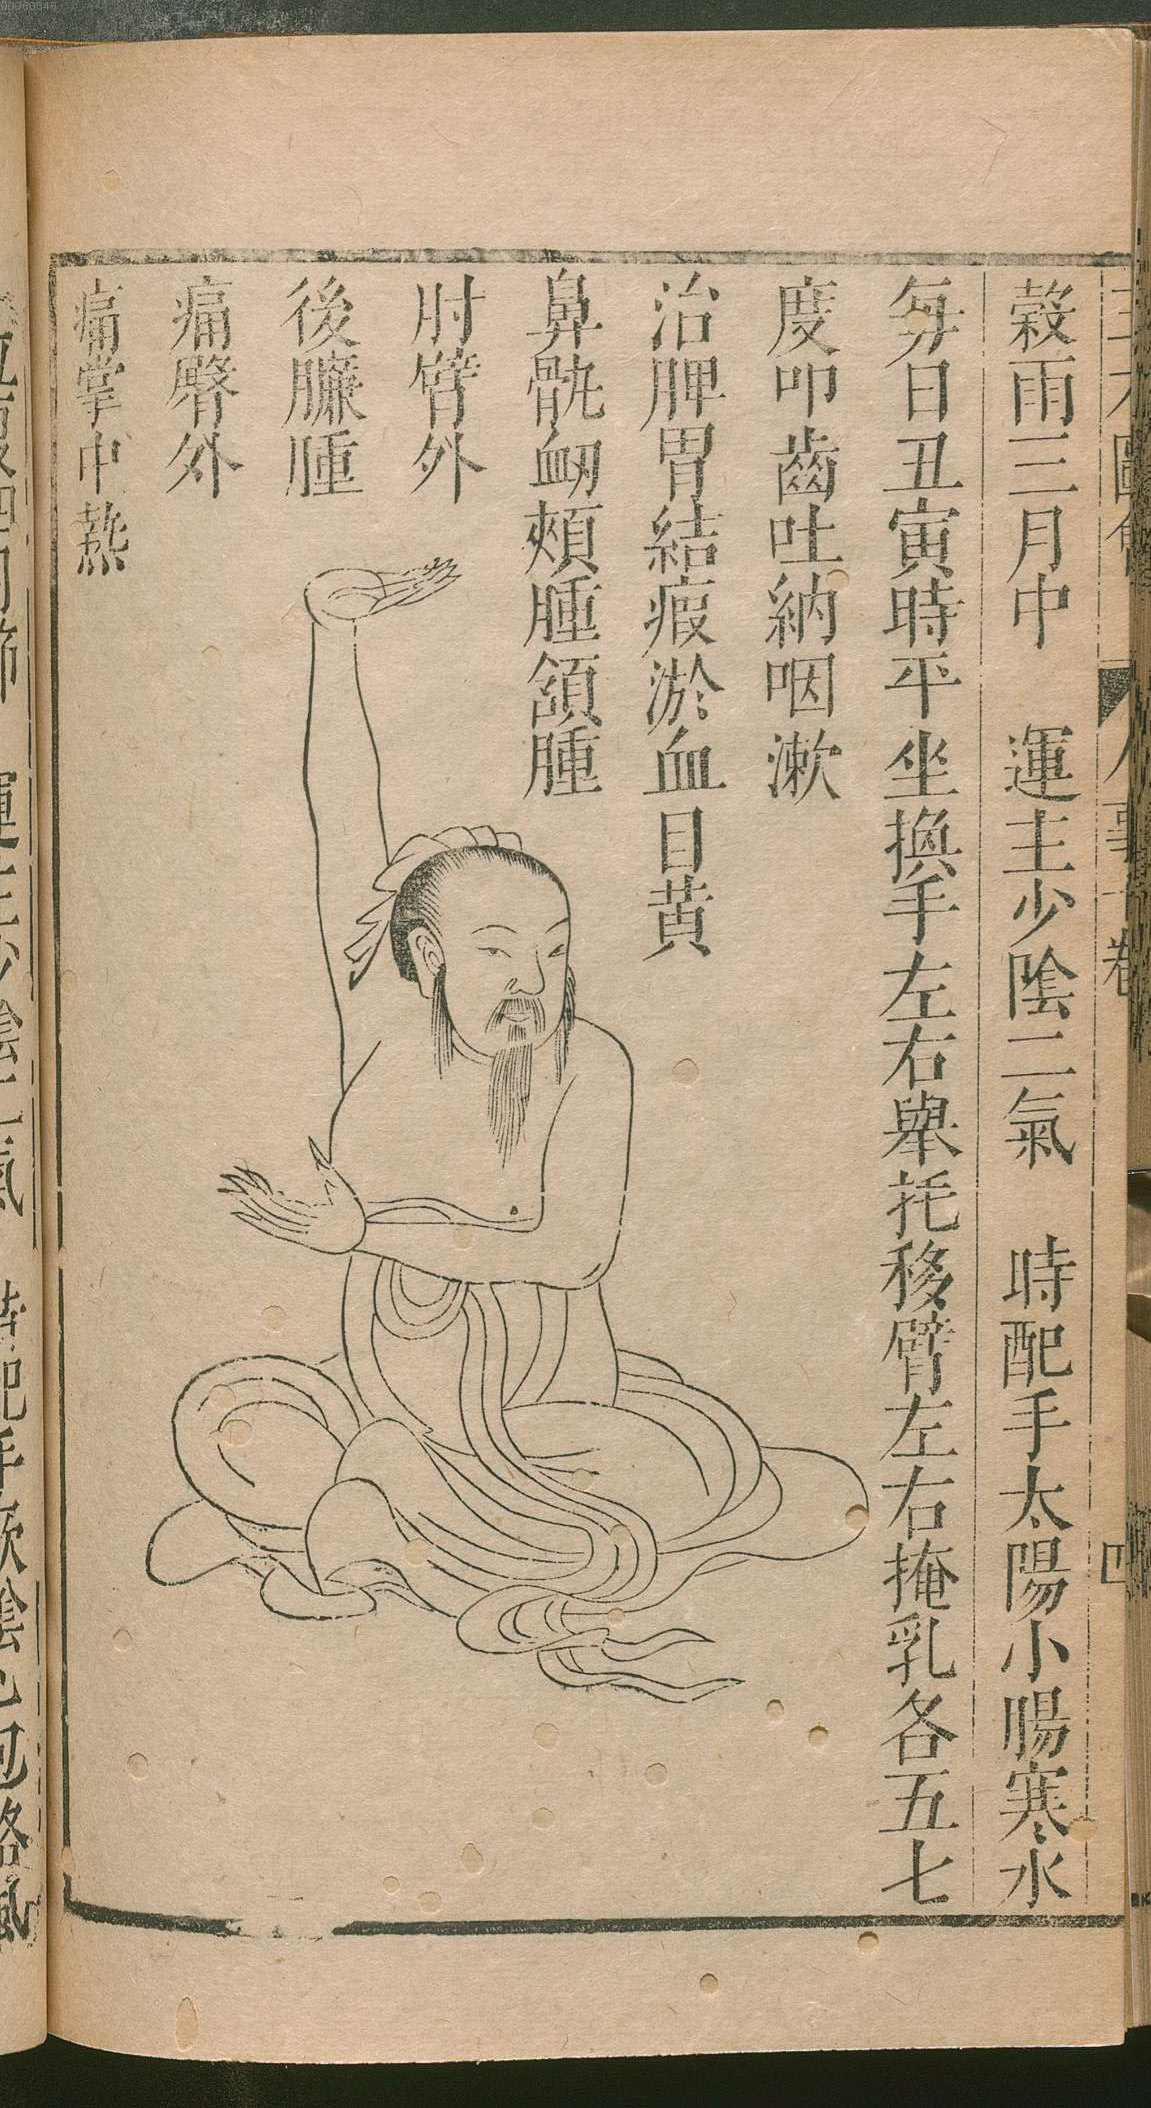 榖雨三月中　運主少陰二氣　時配手太陽小腸寒水
每日丑寅時平坐換手左右舉托移臂左右掩乳各五七
度叩齒吐納咽漱
治脾胃結瘕淤血目黃
鼻鼽衂頰腫頷腫
肘臂外
後臁腫
痛臀外
痛掌中熱